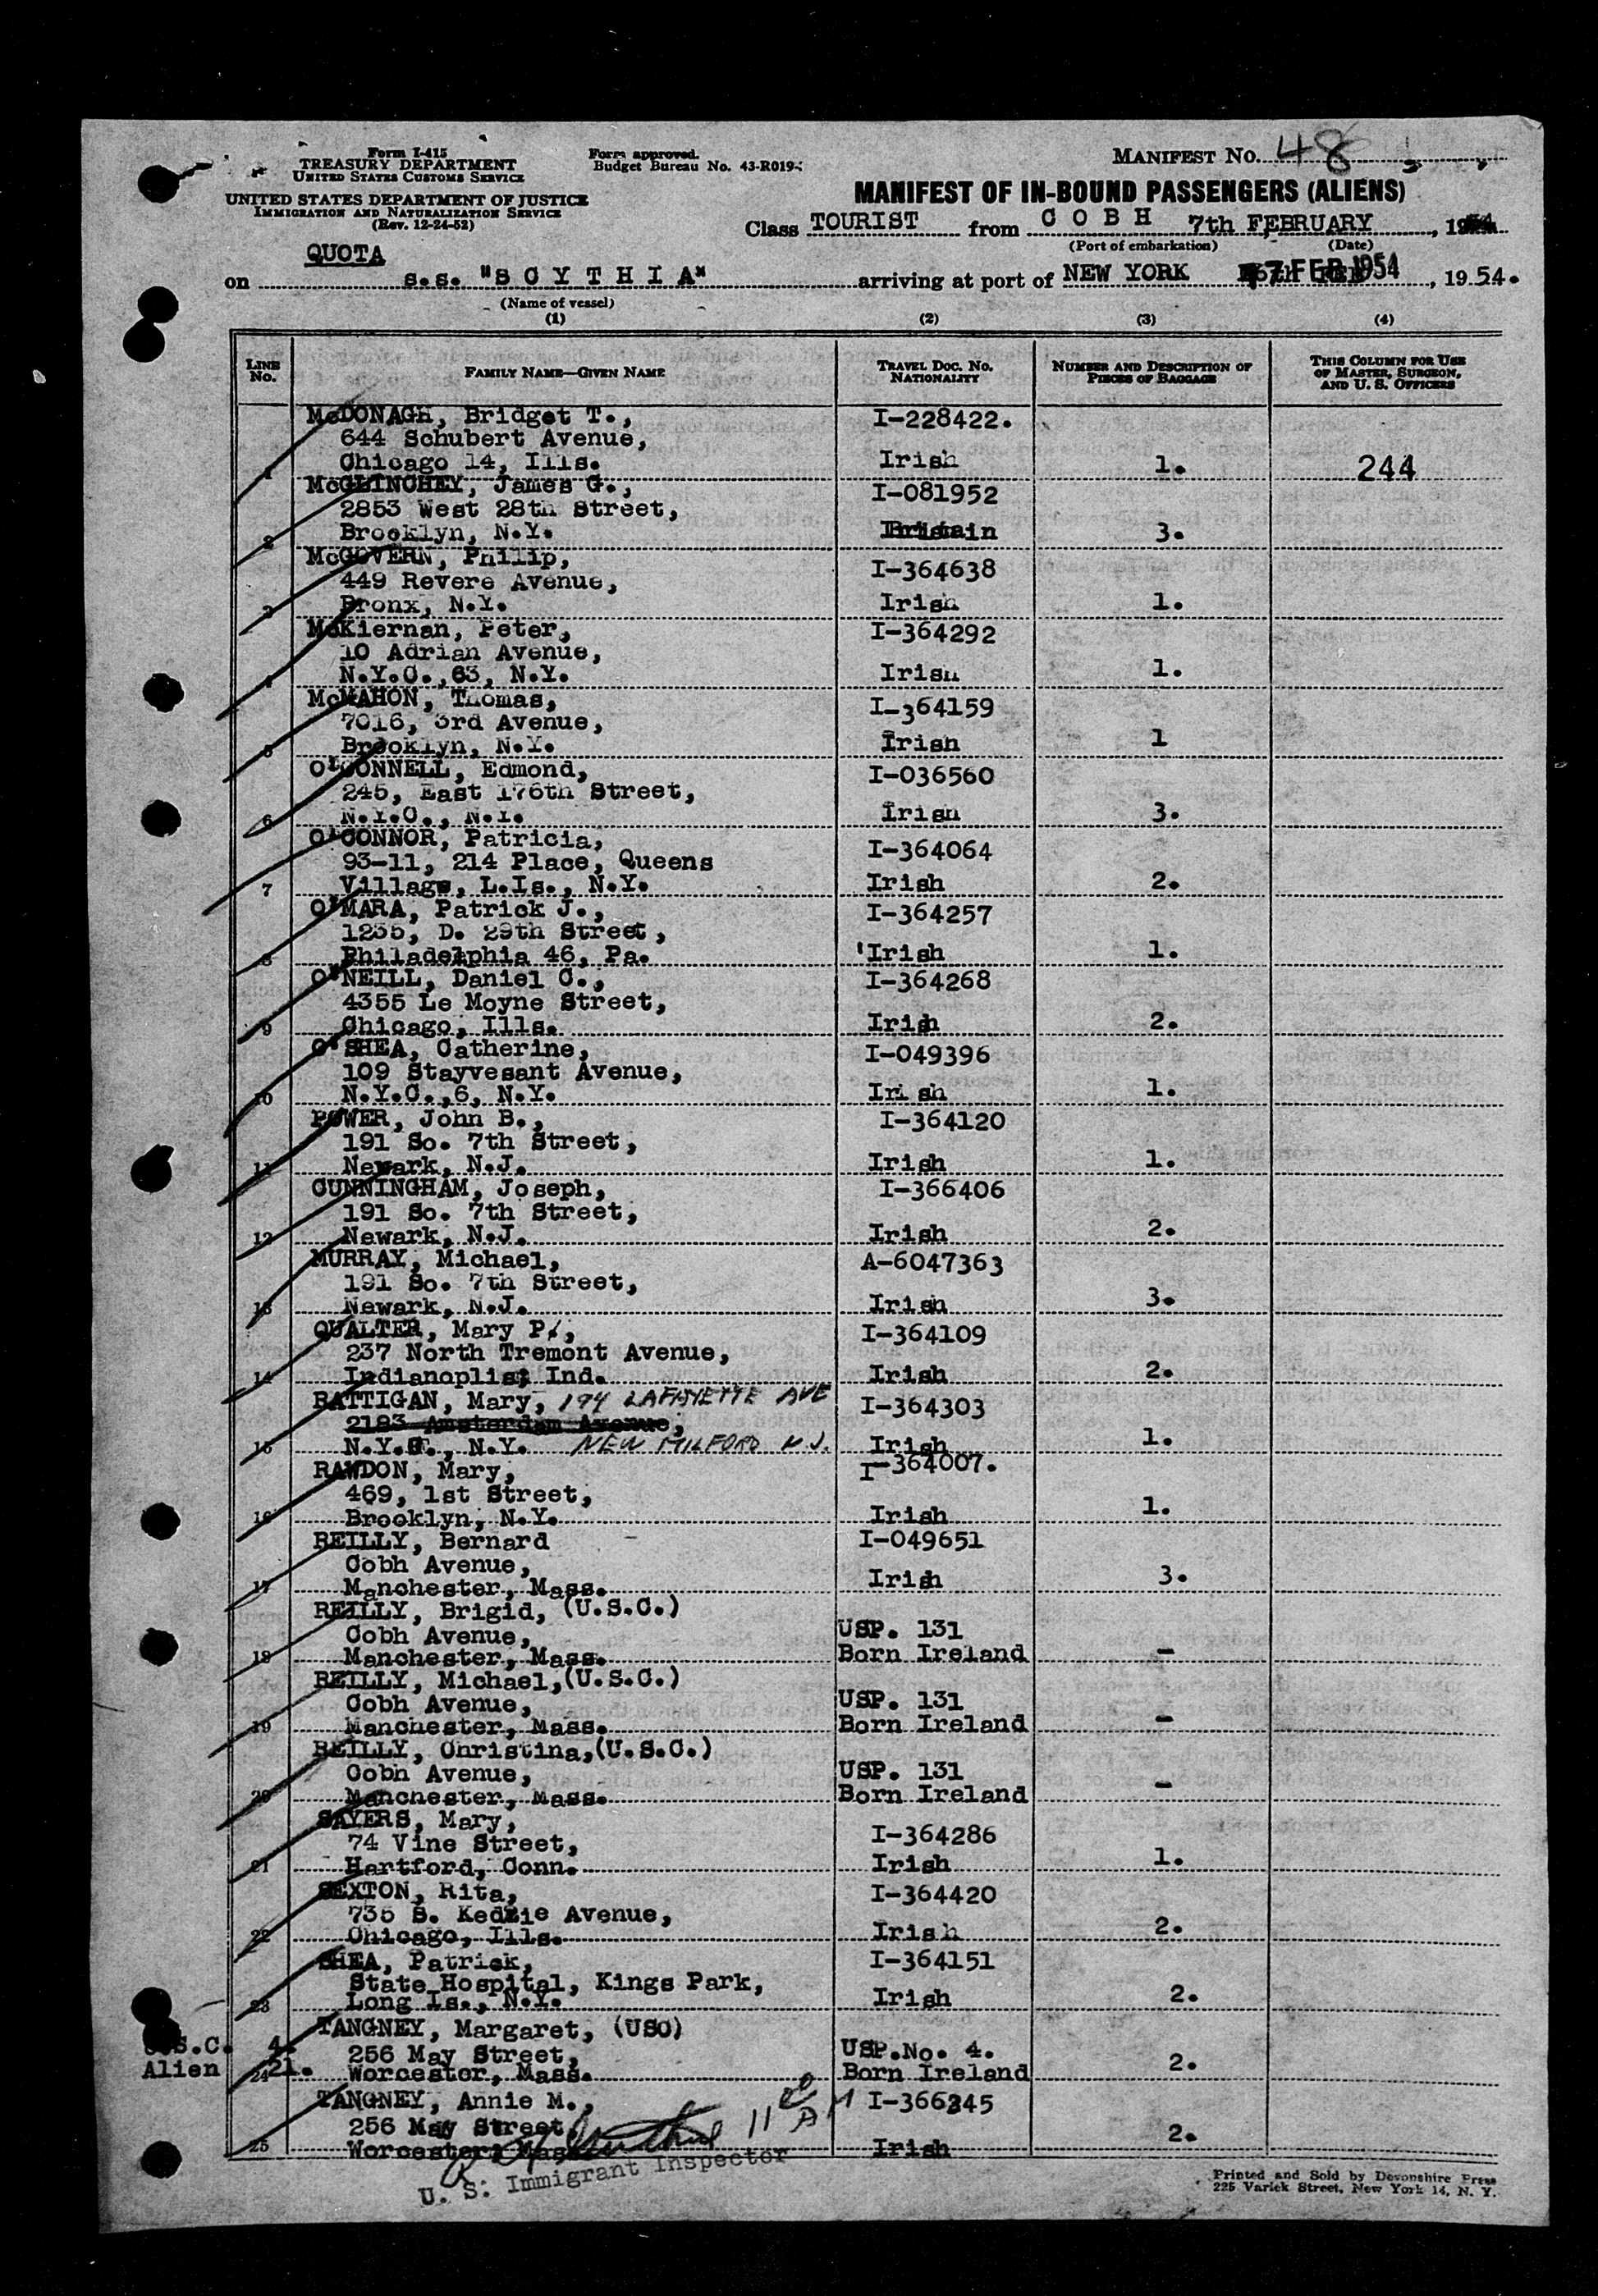 Form I-415
TREASURY DEPARTMENT
UNITED STATES CUSTOMS SERVICE
UNITED STATES DEPARTMENT OF JUSTICE
IMMIGRATION AND NATURALIZATION SERVICE
(Rev. 12-24-52)
Form approved.
Budget Bureau No. 43-R019-
MANIFEST No. 48
MANIFEST OF IN-BOUND PASSENGERS (ALIENS)
Class TOURIST from C O B H 7th FEBRUARY, 1954
(Port of embarkation) (Date)
QUOTA
on s.s. "S C Y T H I A" arriving at port of NEW YORK 17 FEB 1954, 1954.
(Name of vessel)
(1) (2) (3) (4)
LINE No. FAMILY NAME—GIVEN NAME TRAVEL DOC. NO. NATIONALITY NUMBER AND DESCRIPTION OF PIECES OF BAGGAGE THIS COLUMN FOR USE OF MASTER, SURGEON, AND U. S. OFFICERS
McDONAGH, Bridget T., I-228422.
644 Schubert Avenue,
1 Chicago 14, Ills. Irish 1. 244
McGLINCHEY, James G., I-081952
2853 West 28th Street,
2 Brooklyn, N.Y. Britain 3.
McGOVERN, Philip, I-364638
449 Revere Avenue,
3 Bronx, N.Y. Irish 1.
McKiernan, Peter, I-364292
10 Adrian Avenue,
4 N.Y.C.,63, N.Y. Irish 1.
McMAHON, Thomas, I-364159
7016, 3rd Avenue,
5 Brooklyn, N.Y. Irish 1
O'CONNELL, Edmond, I-036560
245, East 176th Street,
6 N.Y.C., N.Y. Irish 3.
O'CONNOR, Patricia, I-364064
93-11, 214 Place, Queens
7 Village, L.Is., N.Y. Irish 2.
O'MARA, Patrick J., I-364257
1235, D. 29th Street,
8 Philadelphia 46, Pa. 'Irish 1.
O'NEILL, Daniel C., I-364268
4355 Le Moyne Street,
9 Chicago, Ills. Irish 2.
O'SHEA, Catherine, I-049396
109 Stayvesant Avenue,
10 N.Y.C.,6, N.Y. Irish 1.
POWER, John B., I-364120
191 So. 7th Street,
11 Newark, N.J. Irish 1.
CUNNINGHAM, Joseph, I-366406
191 So. 7th Street,
12 Newark, N.J. Irish 2.
MURRAY, Michael, A-6047363
191 So. 7th Street,
13 Newark, N.J. Irish 3.
QUALTER, Mary P., I-364109
237 North Tremont Avenue,
14 Indianoplis, Ind. Irish 2.
RATTIGAN, Mary, 194 LAFAYETTE AVE I-364303
2183 Amsterdam Avenue,
15 N.Y.C., N.Y. NEW MILFORD N.J. Irish 1.
RAWDON, Mary, I-364007.
469, 1st Street,
16 Brooklyn, N.Y. Irish 1.
REILLY, Bernard I-049651
Cobh Avenue,
17 Manchester, Mass. Irish 3.
REILLY, Brigid, (U.S.C.)
Cobh Avenue, USP. 131
18 Manchester, Mass. Born Ireland -
REILLY, Michael,(U.S.C.)
Cobh Avenue, USP. 131
19 Manchester, Mass. Born Ireland -
REILLY, Christina,(U.S.C.)
Cobh Avenue, USP. 131
20 Manchester, Mass. Born Ireland -
SAYERS, Mary,
74 Vine Street, I-364286
21 Hartford, Conn. Irish 1.
SEXTON, Rita, I-364420
735 S. Kedzie Avenue,
22 Chicago, Ills. Irish 2.
SHEA, Patrick, I-364151
State Hospital, Kings Park,
23 Long Is., N.Y. Irish 2.
TANGNEY, Margaret, (USC)
U.S.C. 4. 256 May Street, USP.No. 4.
Alien 21. 24 Worcester, Mass. Born Ireland 2.
TANGNEY, Annie M., I-366345
256 May Street, 11 00 AM
25 Worcester, Mass. Irish 2.
U. S. Immigrant Inspector
Printed and Sold by Devonshire Press
225 Varick Street, New York 14, N. Y.